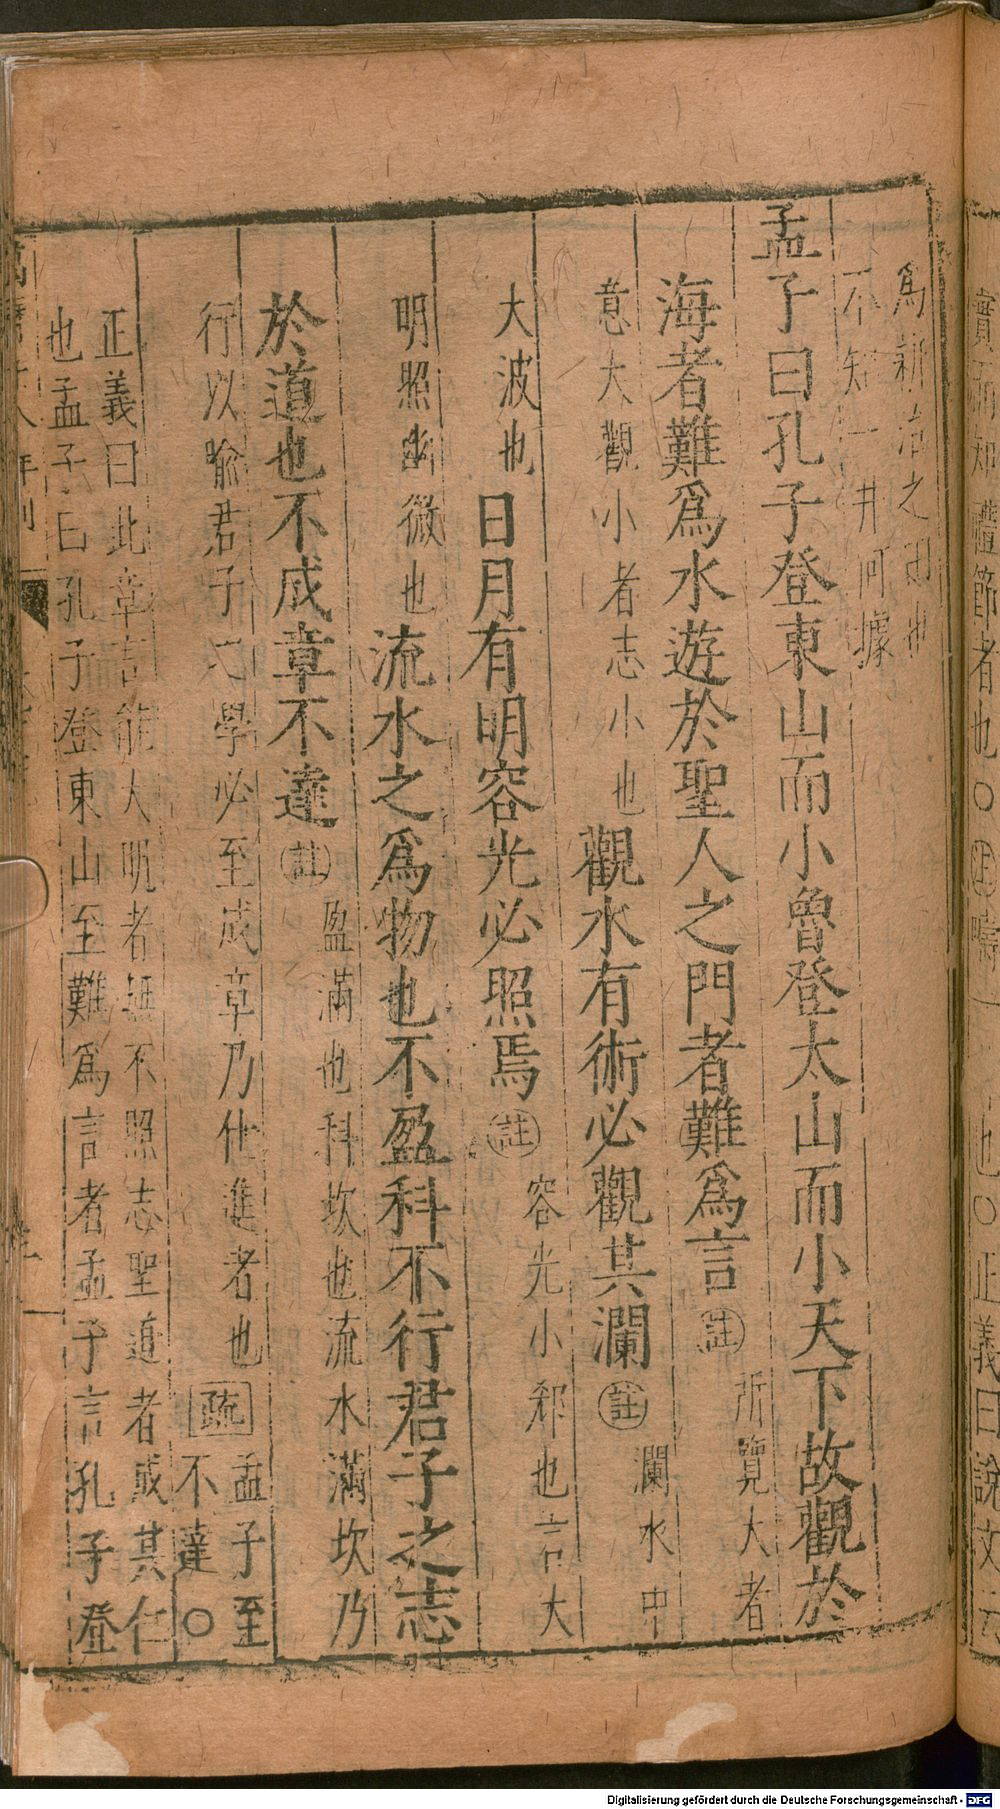 爲新沿之
不知一井何據
孟子曰孔子登東山而小魯登太山而小天下故觀於
海者難爲水遊於聖人之門者難爲言 註 所覽大者
意大觀小者志小也 觀水有術必觀其瀾 註 瀾水中
大波也 日月有明容光必照焉 註 容光小郄也言大
明照幽微也 流水之爲物也不盈科不行君子之志
於道也不成章不達 註 盈滿也科坎也流水滿坎乃
行以喻君子之學必至成章乃仕進者也 疏 孟子至
不達○
正義曰此章言能大明者無不照志聖道者成其仁
也孟子曰孔子登東山至難爲言者孟子言孔子登
正義曰說文云
Digitalisierung gefördert durch die Deutsche Forschungsgemeinschaft - DFG